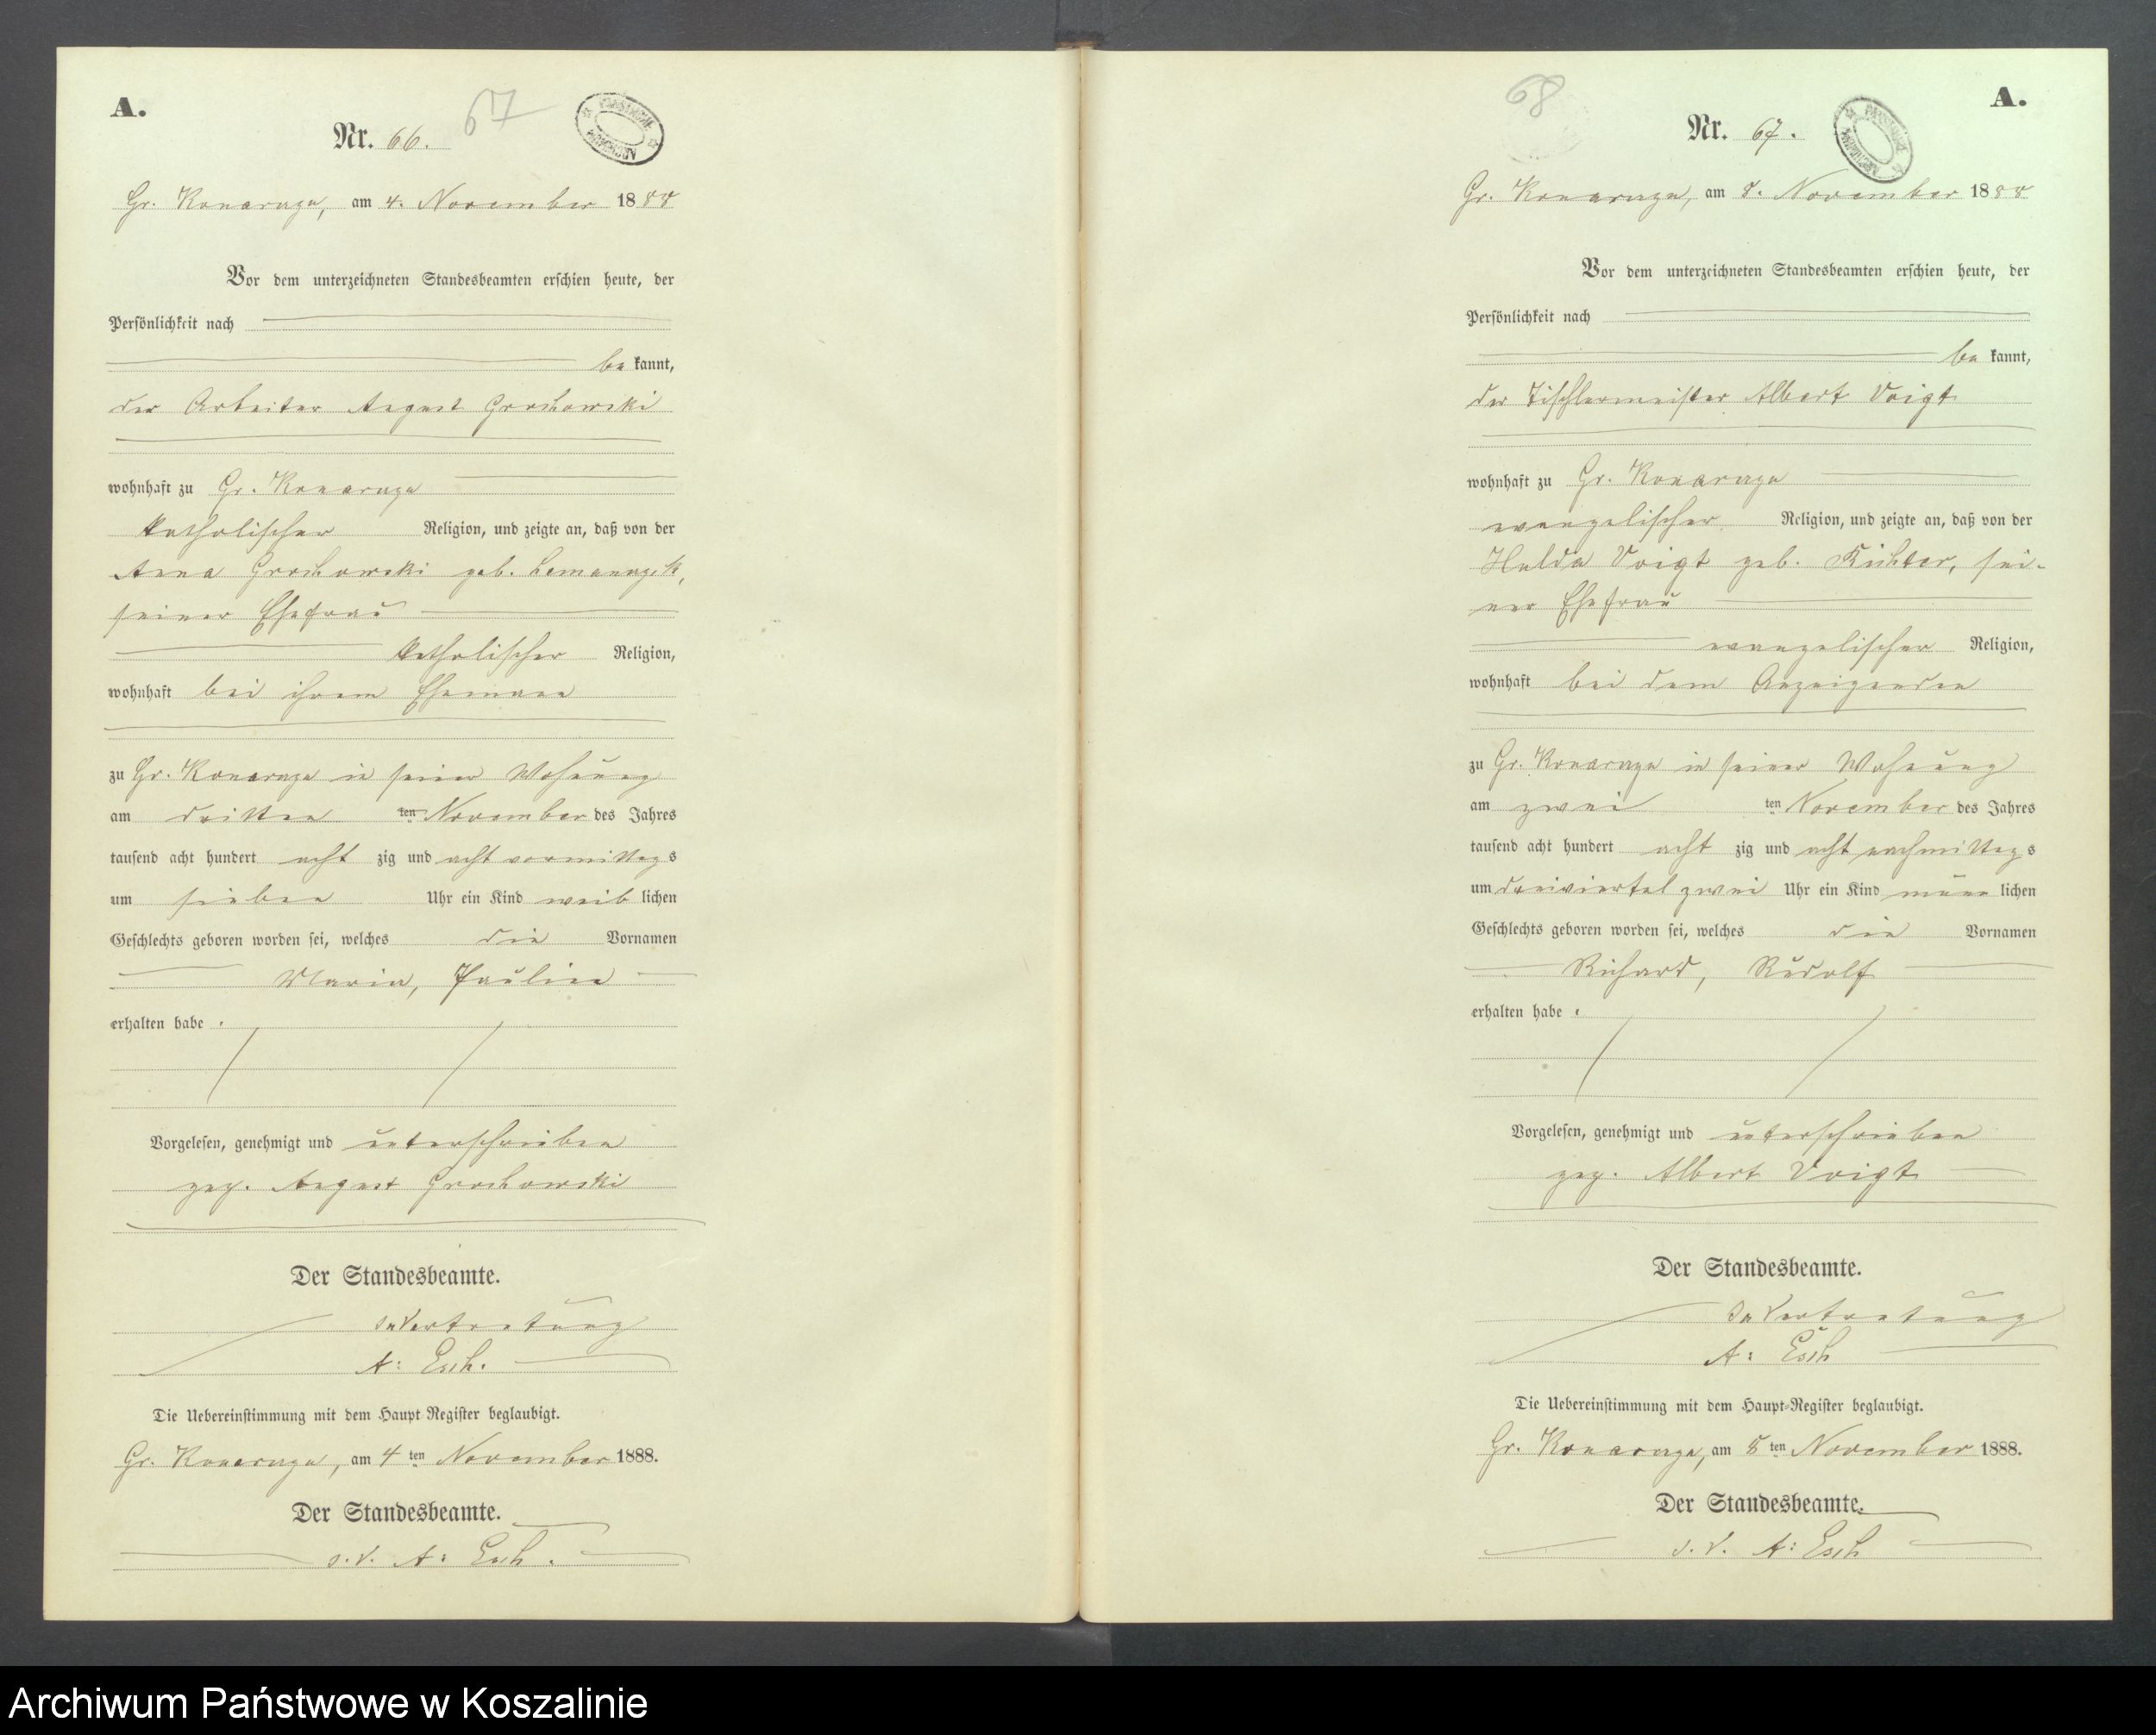 A.
Nr. 66.
67
Gr. Konarczyn, am 4. November 1888
Vor dem unterzeichneten Standesbeamten erschien heute, der
Persönlichkeit nach
be kannt,
der Arbeiter August Grochowski
wohnhaft zu Gr. Konarczyn
katholischer Religion, und zeigte an, daß von der
Anna Grochowski geb.
seiner Ehefrau
katholischer Religion,
wohnhaft bei ihrem Ehemann
zu Gr. Konarczyn in seiner Wohnung
am dritten ten November des Jahres
tausend acht hundert acht zig und acht vormittags
um sieben Uhr ein Kind weib lichen
Geschlechts geboren worden sei, welches die Vornamen
Maria, Pauline
erhalten habe.
Vorgelesen, genehmigt und unterschrieben
gez. August Grochowski
Der Standesbeamte.
In Vertretung
A: Esch.
Die Uebereinstimmung mit dem Haupt-Register beglaubigt.
Gr. Konarczyn, am 4 ten November 1888.
Der Standesbeamte.
I. V. A: Esch.
68
A.
Nr. 67.
Gr. Konarczyn, am 8. November 1888
Vor dem unterzeichneten Standesbeamten erschien heute, der
Persönlichkeit nach
be kannt,
der Tischlermeister Albert Voigt
wohnhaft zu Gr. Konarczyn
evangelischer Religion, und zeigte an, daß von der
Hulda Voigt geb. Richter, sei-
ner Ehefrau
evangelischer Religion,
wohnhaft bei dem Anzeigenden
zu Gr. Konarczyn in seiner Wohnung
am zwei ten November des Jahres
tausend acht hundert acht zig und acht nachmittags
um dreiviertel zwei Uhr ein Kind männ lichen
Geschlechts geboren worden sei, welches die Vornamen
Richard, Rudolf
erhalten habe.
Vorgelesen, genehmigt und unterschrieben
gez. Albert Voigt
Der Standesbeamte.
In Vertretung
A: Esch
Die Uebereinstimmung mit dem Haupt-Register beglaubigt.
Gr. Konarczyn, am 8 ten November 1888.
Der Standesbeamte.
I. V. A: Esch
Archiwum Państwowe w Koszalinie